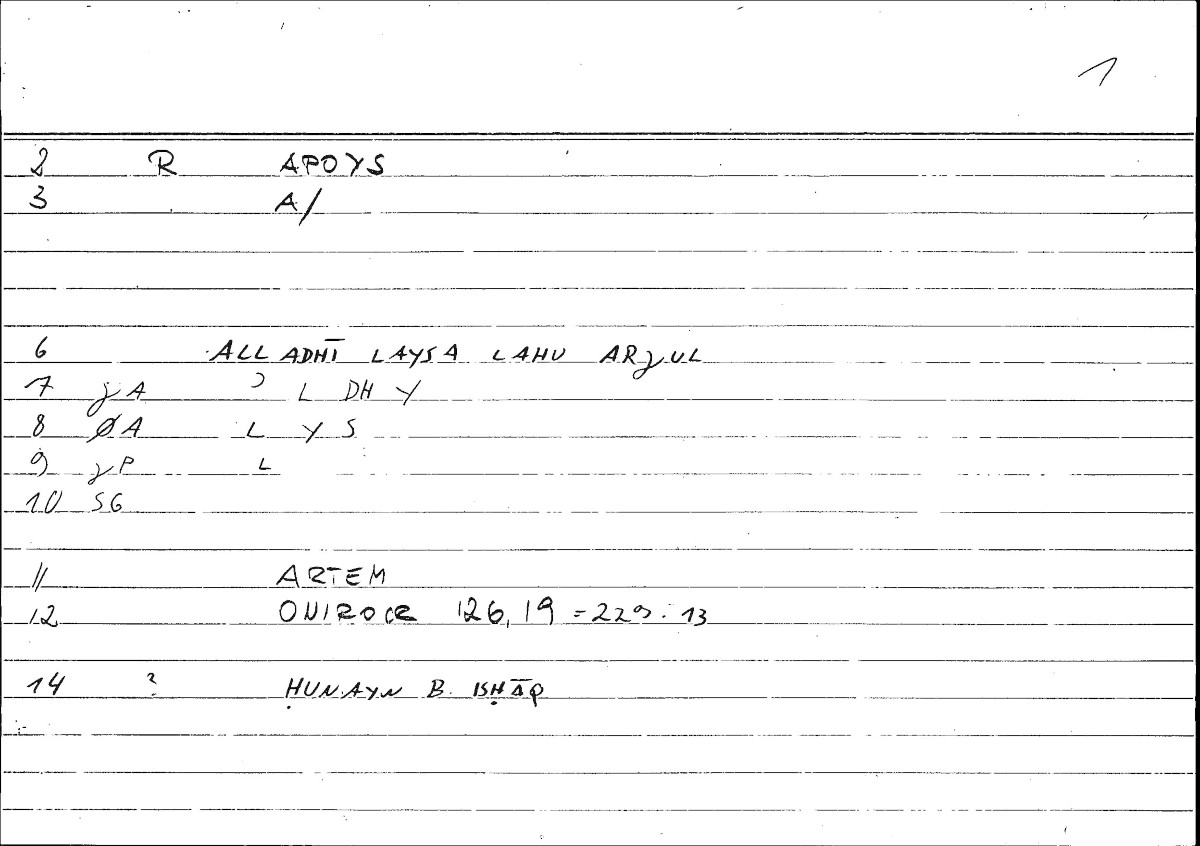 1
2 R APOYS
3 A/
6 ALLADHĪ LAYSA LAHU ARJUL
7 JA ʾ L DH Y
8 ØA L Y S
9 JP L
10 SG
11 ARTEM
12 ONIROCR 126,19 = 229.13
14 ? ḤUNAYN B. ISḤĀQ